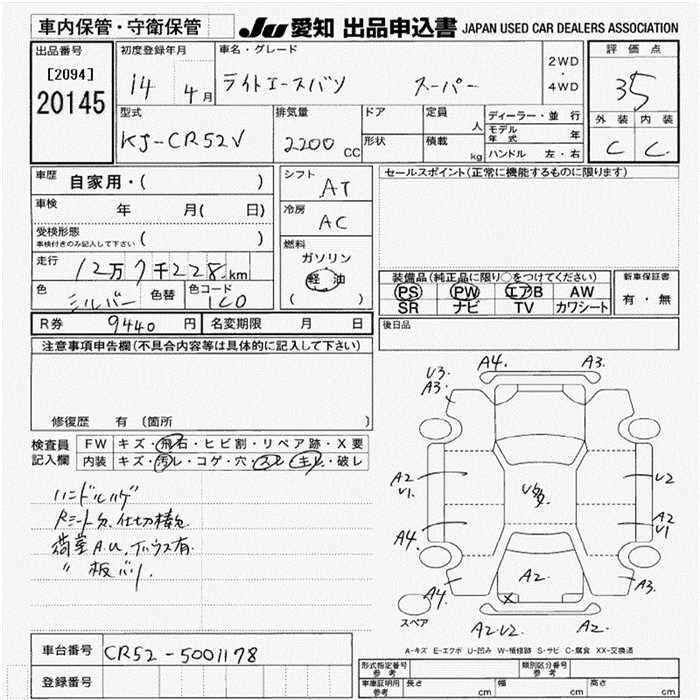 車内保管・守衛保管 JU 愛知 出品申込書 JAPAN USED CAR DEALERS ASSOCIATION
出品番号 初度登録年月 車名・グレード 2WD・4WD 評価点
[2094] 14 4月 ライトエースバン スーパー 35
20145 外装 内装
C C
型式 排気量 ドア 定員 人 ディーラー・並行
KJ-CR52V 2200 CC 形状 積載 kg モデル年式 年
ハンドル 左・右
車歴 自家用・( ) シフト AT セールスポイント(正常に機能するものに限ります)
車検 年 月( 日) 冷房 AC
受検形態 ( )
車検付きのみ記入して下さい
燃料 ガソリン
軽油
( )
走行 12万7千228km
色 シルバー 色替 色コード 1C0
装備品(純正品に限り○をつけてください) 新車保証書
PS PW エアB AW 有・無
SR ナビ TV カワシート
R券 9440円 名変期限 月 日 後日品
注意事項申告欄(不具合内容等は具体的に記入して下さい)
修復歴 有 〔箇所 〕
検査員記入欄 FW キズ・飛石・ヒビ割・リペア跡・X要
内装 キズ・汚レ・コゲ・穴・スレ・キレ・破レ
ハンドルハゲ
荷室A.U.
〃 板バリ.
A4. A3.
U3.
A3.
A2 U2
U1. A2
U1
A4.
A2.
A4 X A3.
A2.U2.
スペア
A-キズ E-エクボ U-凹み W-補修跡 S-サビ C-腐食 XX-交換済
車台番号 CR52-5001178
登録番号
形式指定番号 参考 類別区分番号 参考
車庫証明用 参考 長さ cm 幅 cm 高さ cm